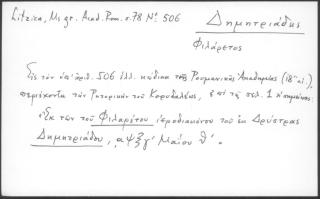 Litzica, Ms gr. Acad. Rom. σ. 78 Nº 506
Δημητριάδης
Φιλάρετος
Εἰς τὸν ὑπ' ἀριθ. 506 ἑλλ. κώδικα τῆς Ρουμανικῆς Ἀκαδημίας (18ου αἰ.),
περιέχοντα τὴν Ρητορικὴν τοῦ Κορυδαλέως, ἐπὶ τῆς σελ. 1 σημείωσις
"ἐκ τῶν τοῦ Φιλαρέτου ἱεροδιακόνου τοῦ ἐκ Δρύστρας
Δημητριάδου, αψξγ' Μαΐου θ'.